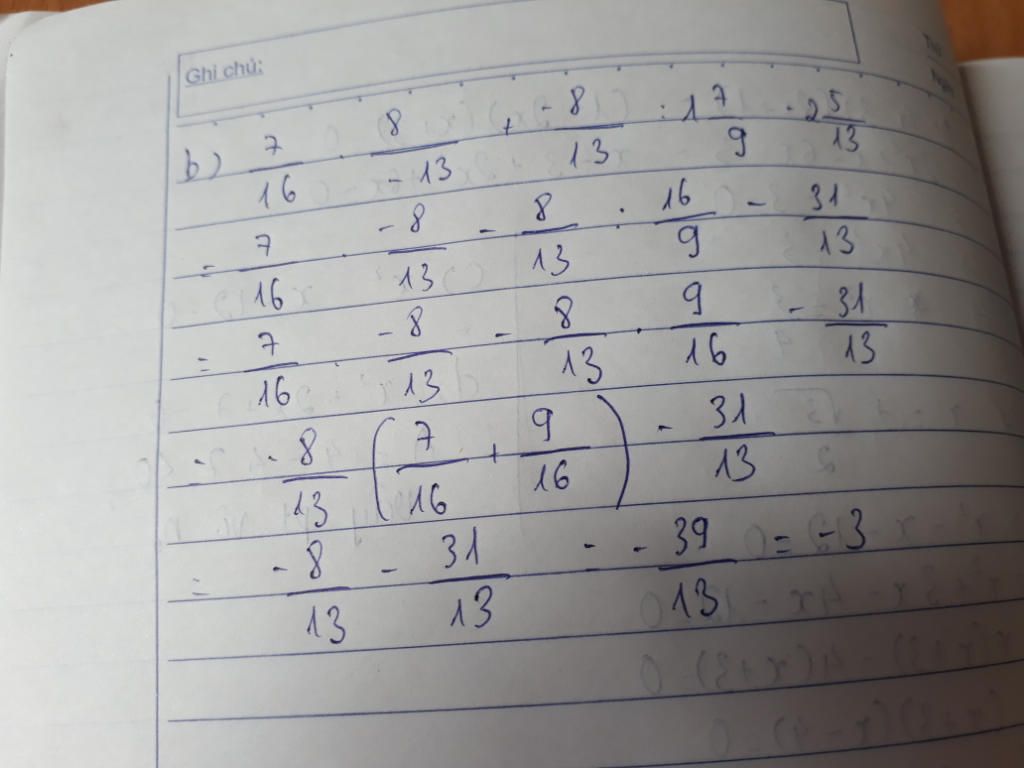 Ghi chú:
b) 7/16 . 8/-13 + -8/13 : 1 7/9 - 2 5/13
= 7/16 . -8/13 - 8/13 : 16/9 - 31/13
= 7/16 . -8/13 - 8/13 . 9/16 - 31/13
= -8/13 (7/16 + 9/16) - 31/13
= -8/13 - 31/13 = -39/13 = -3